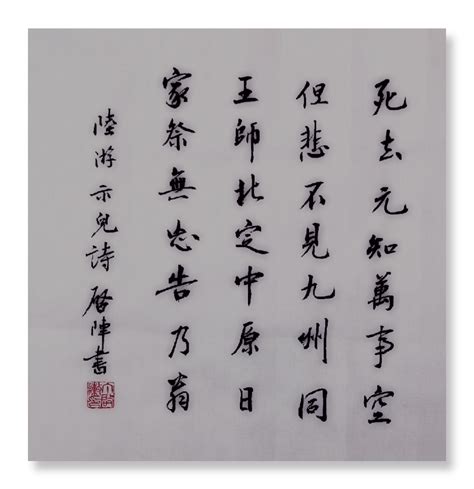 死去元知萬事空
但悲不見九州同
王師北定中原日
家祭無忘告乃翁
陸游示兒詩 啓陣書